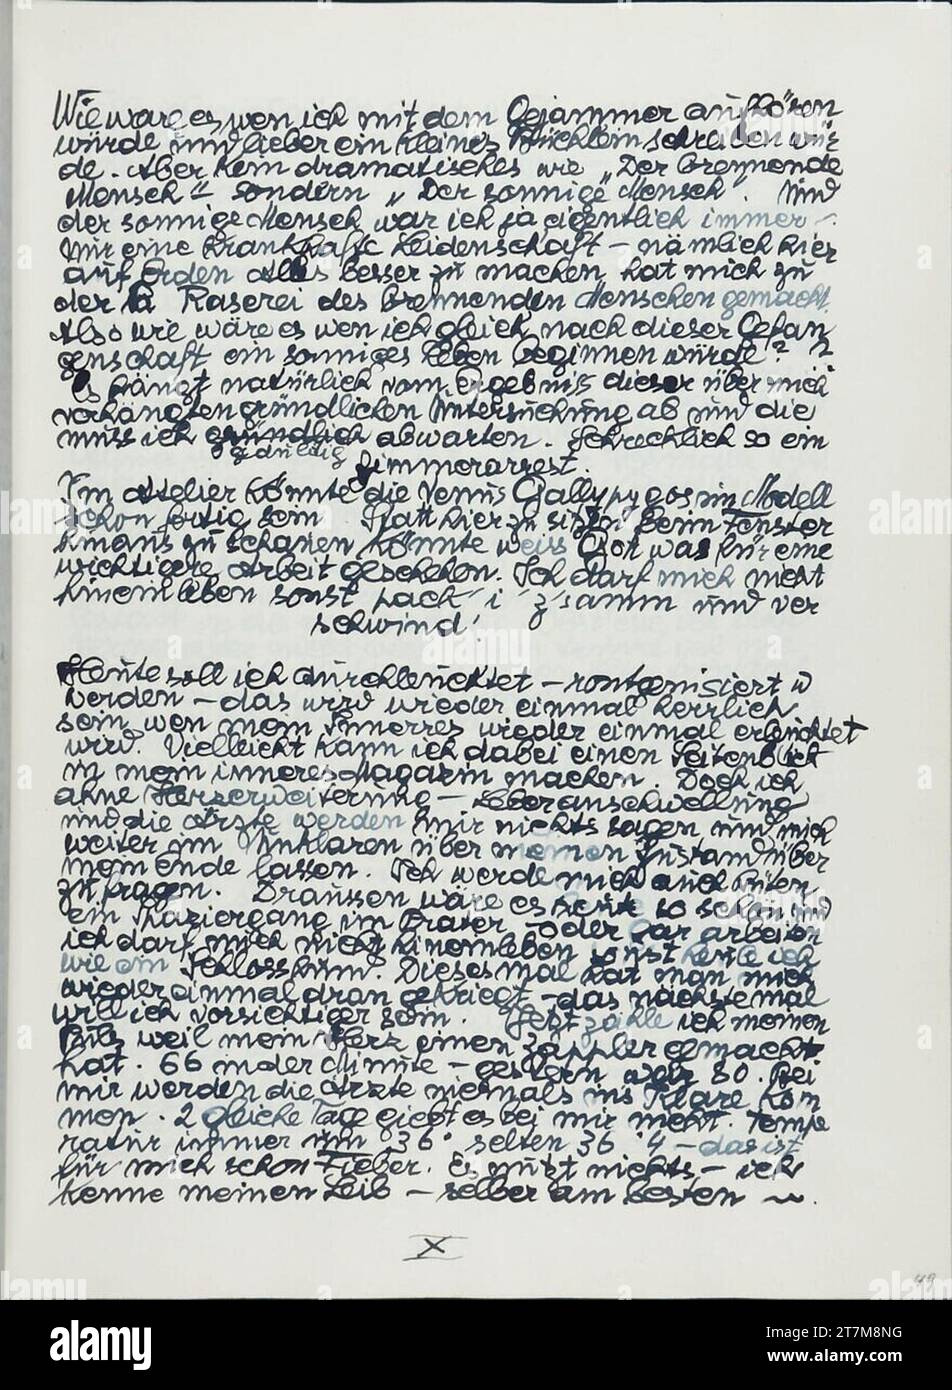 Wie wäre es wen ich mit dem Gejammer aufhören
würde und lieber ein kleines Büchlein schreiben wür
de. Aber kein dramatisches wie „Der brennende
Mensch" sondern „Der sonnige Mensch". Und
der sonnige Mensch war ich ja eigentlich immer –
Mir eine krankhafte Leidenschaft – nämlich hier
auf Erden alles besser zu machen hat mich zu
der Raserei des brennenden Menschen gemacht.
Also wie wäre es wen ich gleich nach dieser Gefan
genschaft ein sonniges Leben beginnen würde?
Es hängt natürlich vom Ergebniss dieser über mich
verhängten gründlichen Untersuchung ab und die
muss ich gründlich abwarten. Schrecklich so ein
geduldig Zimmerarrest.
Im Atelier könnte die Venus Gallypygos im Modell
schon fertig sein. Statt hier zu sitzen beim Fenster
hinaus zu schauen könnte weiss Gott was für eine
wichtigere Arbeit geschehen. Ich darf mich nicht
hineinleben sonst pack' i z'samm und ver
schwind!
Heute soll ich durchleuchtet – röntgenisiert
werden – das wird wieder einmal herrlich
sein wen mein Inneres wieder einmal erleuchtet
wird. Vielleicht kann ich dabei einen Seitenblick
in mein inneres Magazin machen. Doch ich
ahne Herzerweiterung – Leberanschwellung
und die Ärzte werden mir nichts sagen und mich
weiter im Unklaren über meinen Zustand über
mein Ende lassen. Ich werde mich auch hüten
zu fragen. Draussen wäre es heute so schön und
ein Spaziergang im Prater – oder gar arbeiten
ich darf mich nicht hineinleben sonst heule ich
wie ein Schlosshund. Dieses mal hat man mich
wieder einmal dran gekriegt – das nächste mal
will ich vorsichtiger sein. Jetzt zähle ich meinen
Puls weil mein Herz einen Zappler gemacht
hat. 66 in der Minute – gestern war 80. Bei
mir werden die Ärzte niemals ins Klare kom
men. 2 gleiche Tage giebt es bei mir nicht. Tempe
ratur immer um 36° selten 36°4 – das ist
für mich schon Fieber. Es nutzt nichts – ich
kenne meinen Leib – selber am besten
X
49
alamy
Image ID: 2T7M8NG
www.alamy.com